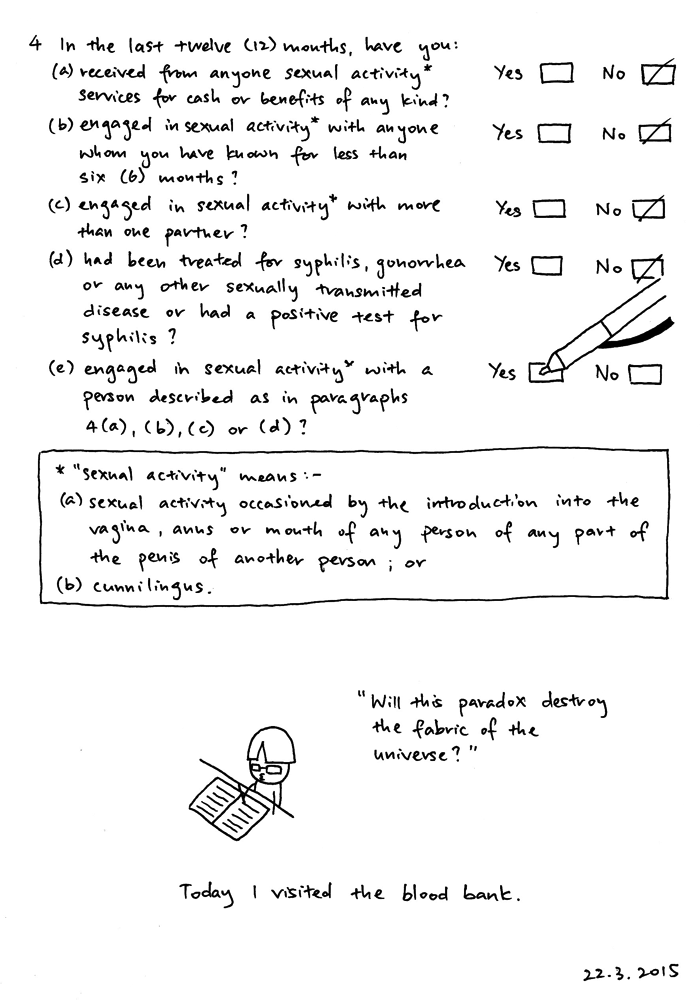 4 In the last twelve (12) months, have you:
(a) received from anyone sexual activity* Yes No
services for cash or benefits of any kind?
(b) engaged in sexual activity* with anyone Yes No
whom you have known for less than
six (6) months?
(c) engaged in sexual activity* with more Yes No
than one partner?
(d) had been treated for syphilis, gonorrhea Yes No
or any other sexually transmitted
disease or had a positive test for
syphilis?
(e) engaged in sexual activity* with a Yes No
person described as in paragraphs
4(a), (b), (c) or (d)?
* "sexual activity" means :-
(a) sexual activity occasioned by the introduction into the
vagina, anus or mouth of any person of any part of
the penis of another person; or
(b) cunnilingus.
"Will this paradox destroy
the fabric of the
universe?"
Today I visited the blood bank.
22.3.2015